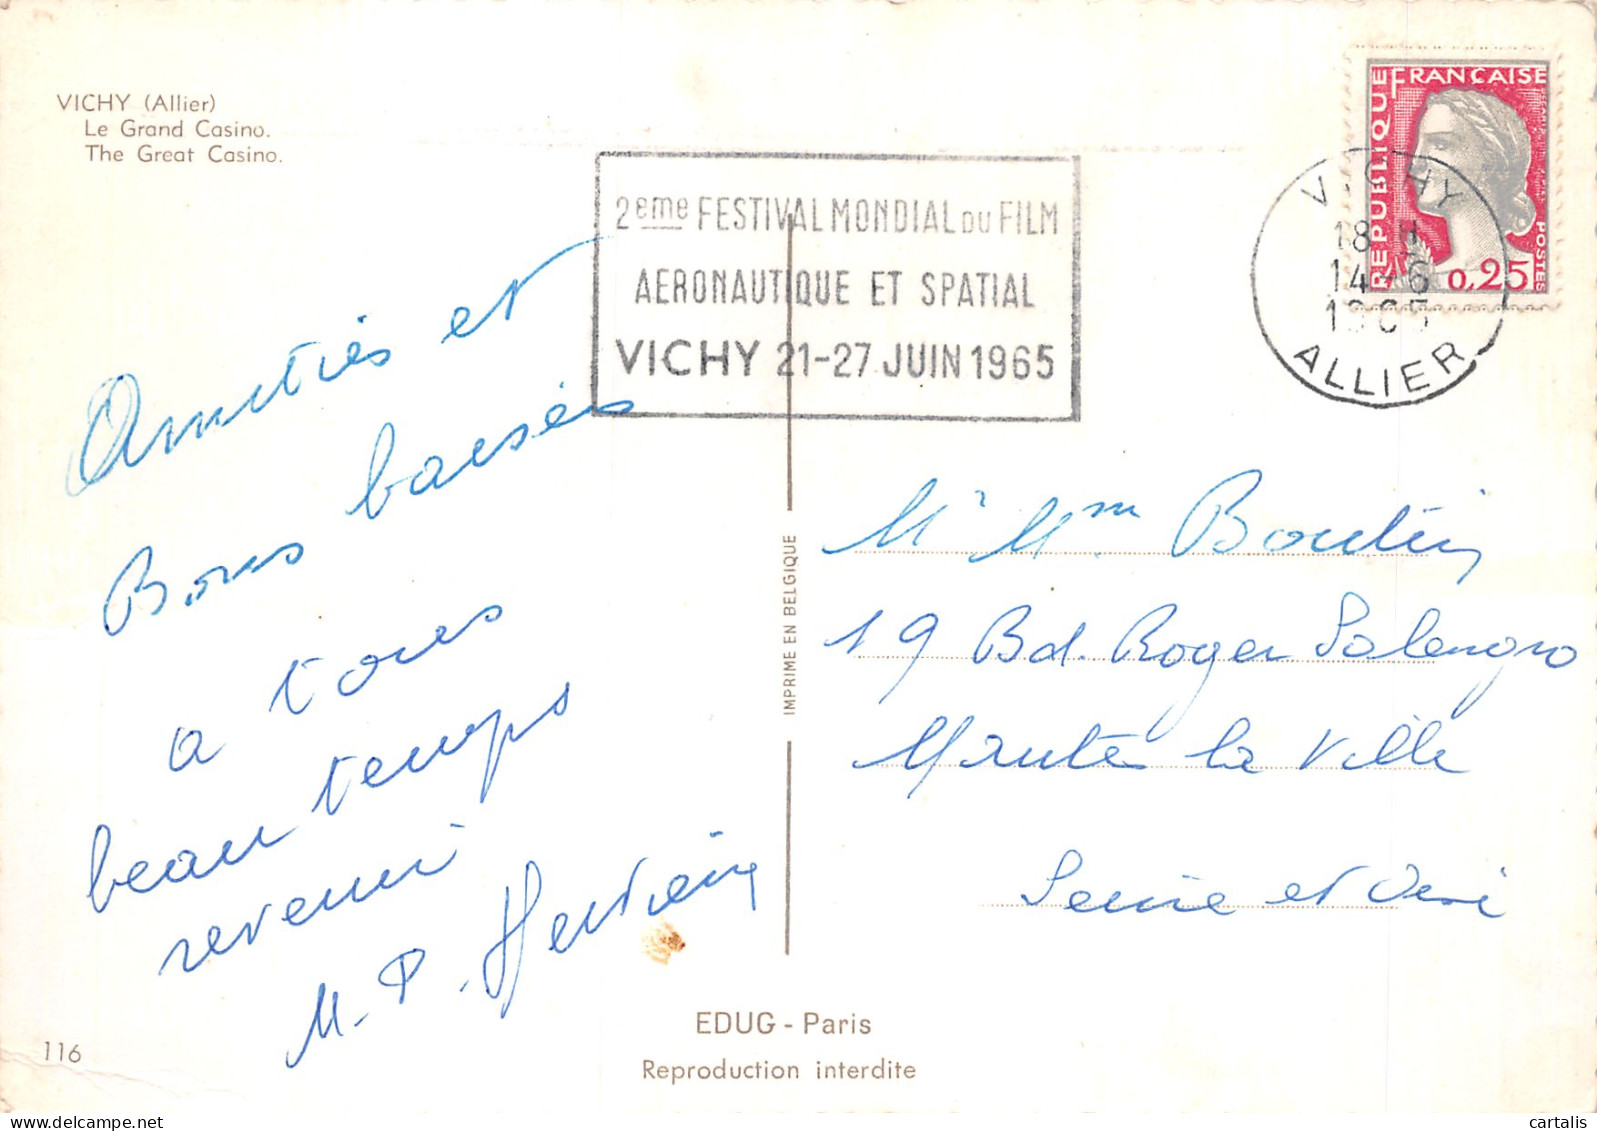 VICHY (Allier)
Le Grand Casino.
The Great Casino.
2eme FESTIVAL MONDIAL DU FILM
AERONAUTIQUE ET SPATIAL
VICHY 21-27 JUIN 1965
REPUBLIQUE FRANÇAISE
POSTES
0,25
VICHY
18 H
14-6
1965
ALLIER
Amitiés et
Bons baisés
a tous
beau temps
revenu
M. P.
Mr Mme Boutin
19 Bd. Roger Salengro
Mantes la Ville
Seine et Oise
IMPRIME EN BELGIQUE
EDUG - Paris
Reproduction interdite
116
cartalis
delcampe.net